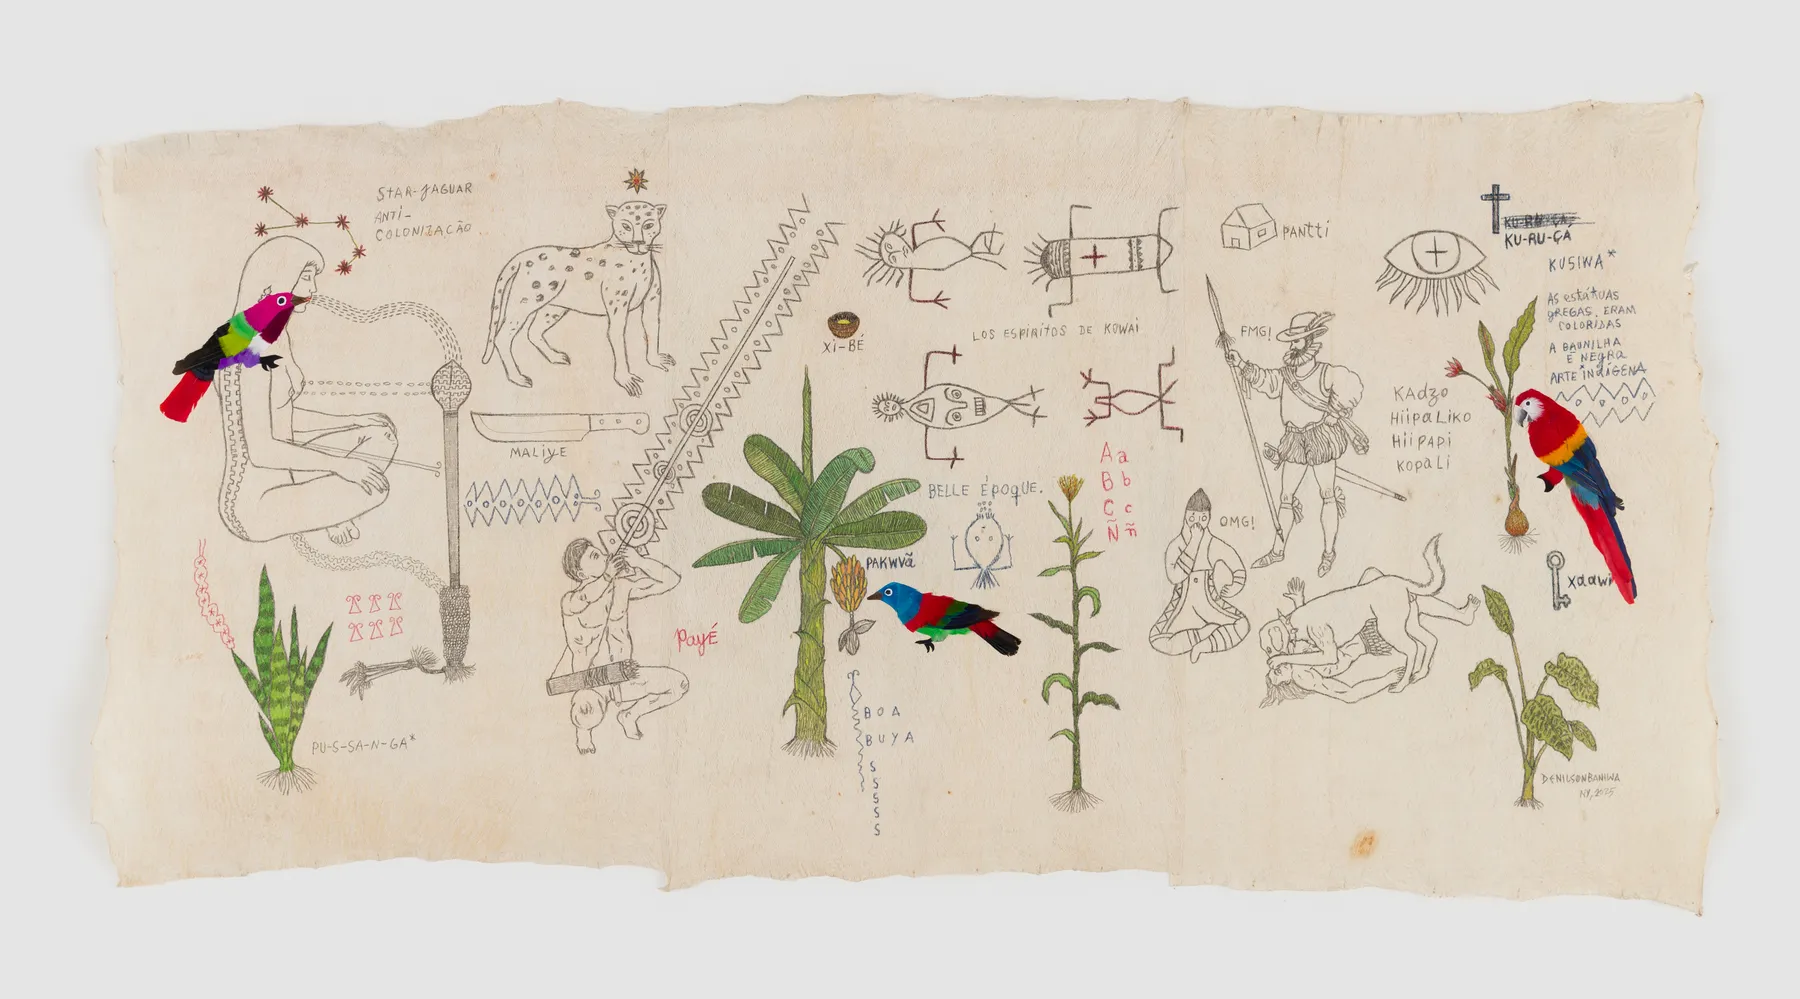 STAR-JAGUAR
ANTI-
COLONIZAÇÃO..
MALIYE
PU-S-SA-N-GA*
Payé
Xi-BÉ
LOS ESPIRITOS DE KOWAI
BELLE ÉPOQUE.
PAKWVÃ
BOA
BUYA
S
S
S
S
S
A a
B b
Ç c
Ñ ñ
PANTTI
FMG!
OMG!
KAdzo
HiipaLiKO
HiiPAPi
KOpaLi
KU-RU-ÇA
KU-RU-ÇÁ
KUSIWA*
AS estátUAS
gREGAS, ERAM
COLORIDAS
A BAUNILHA
É NEgRA
ARTE INDÍGENA
Xaawi
DENILSONBANIWA
NY, 2025